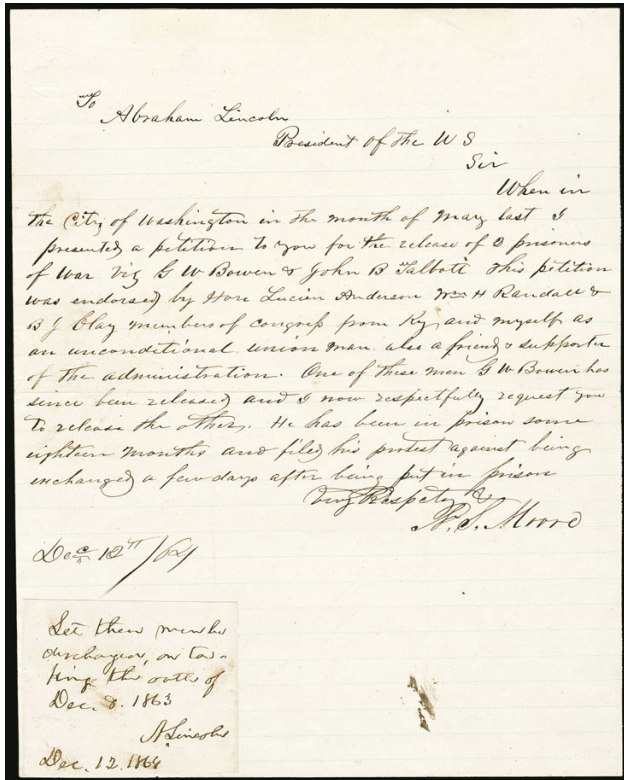 To
Abraham Lincoln
President of the U S
Sir
When in
the City of Washington in the month of May last I
presented a petition to you for the release of 2 prisoners
of war viz G W Bowen & John B Talbott This petition
was endorsed by Hon Lucien Anderson Wm H Randall &
B J Clay members of congress from Ky and myself as
an unconditional union man also a friend & supporter
of the administration. One of these men G W Bowen has
since been released and I now respectfully request you
to release the other. He has been in prison some
eighteen months and filed his protest against being
exchanged a few days after being put in prison
Very Respcty &
Moore
Dec 12th /64
Let these men be
discharged, on ta-
king the oath of
Dec. 8. 1863
A Lincoln
Dec. 12. 1864